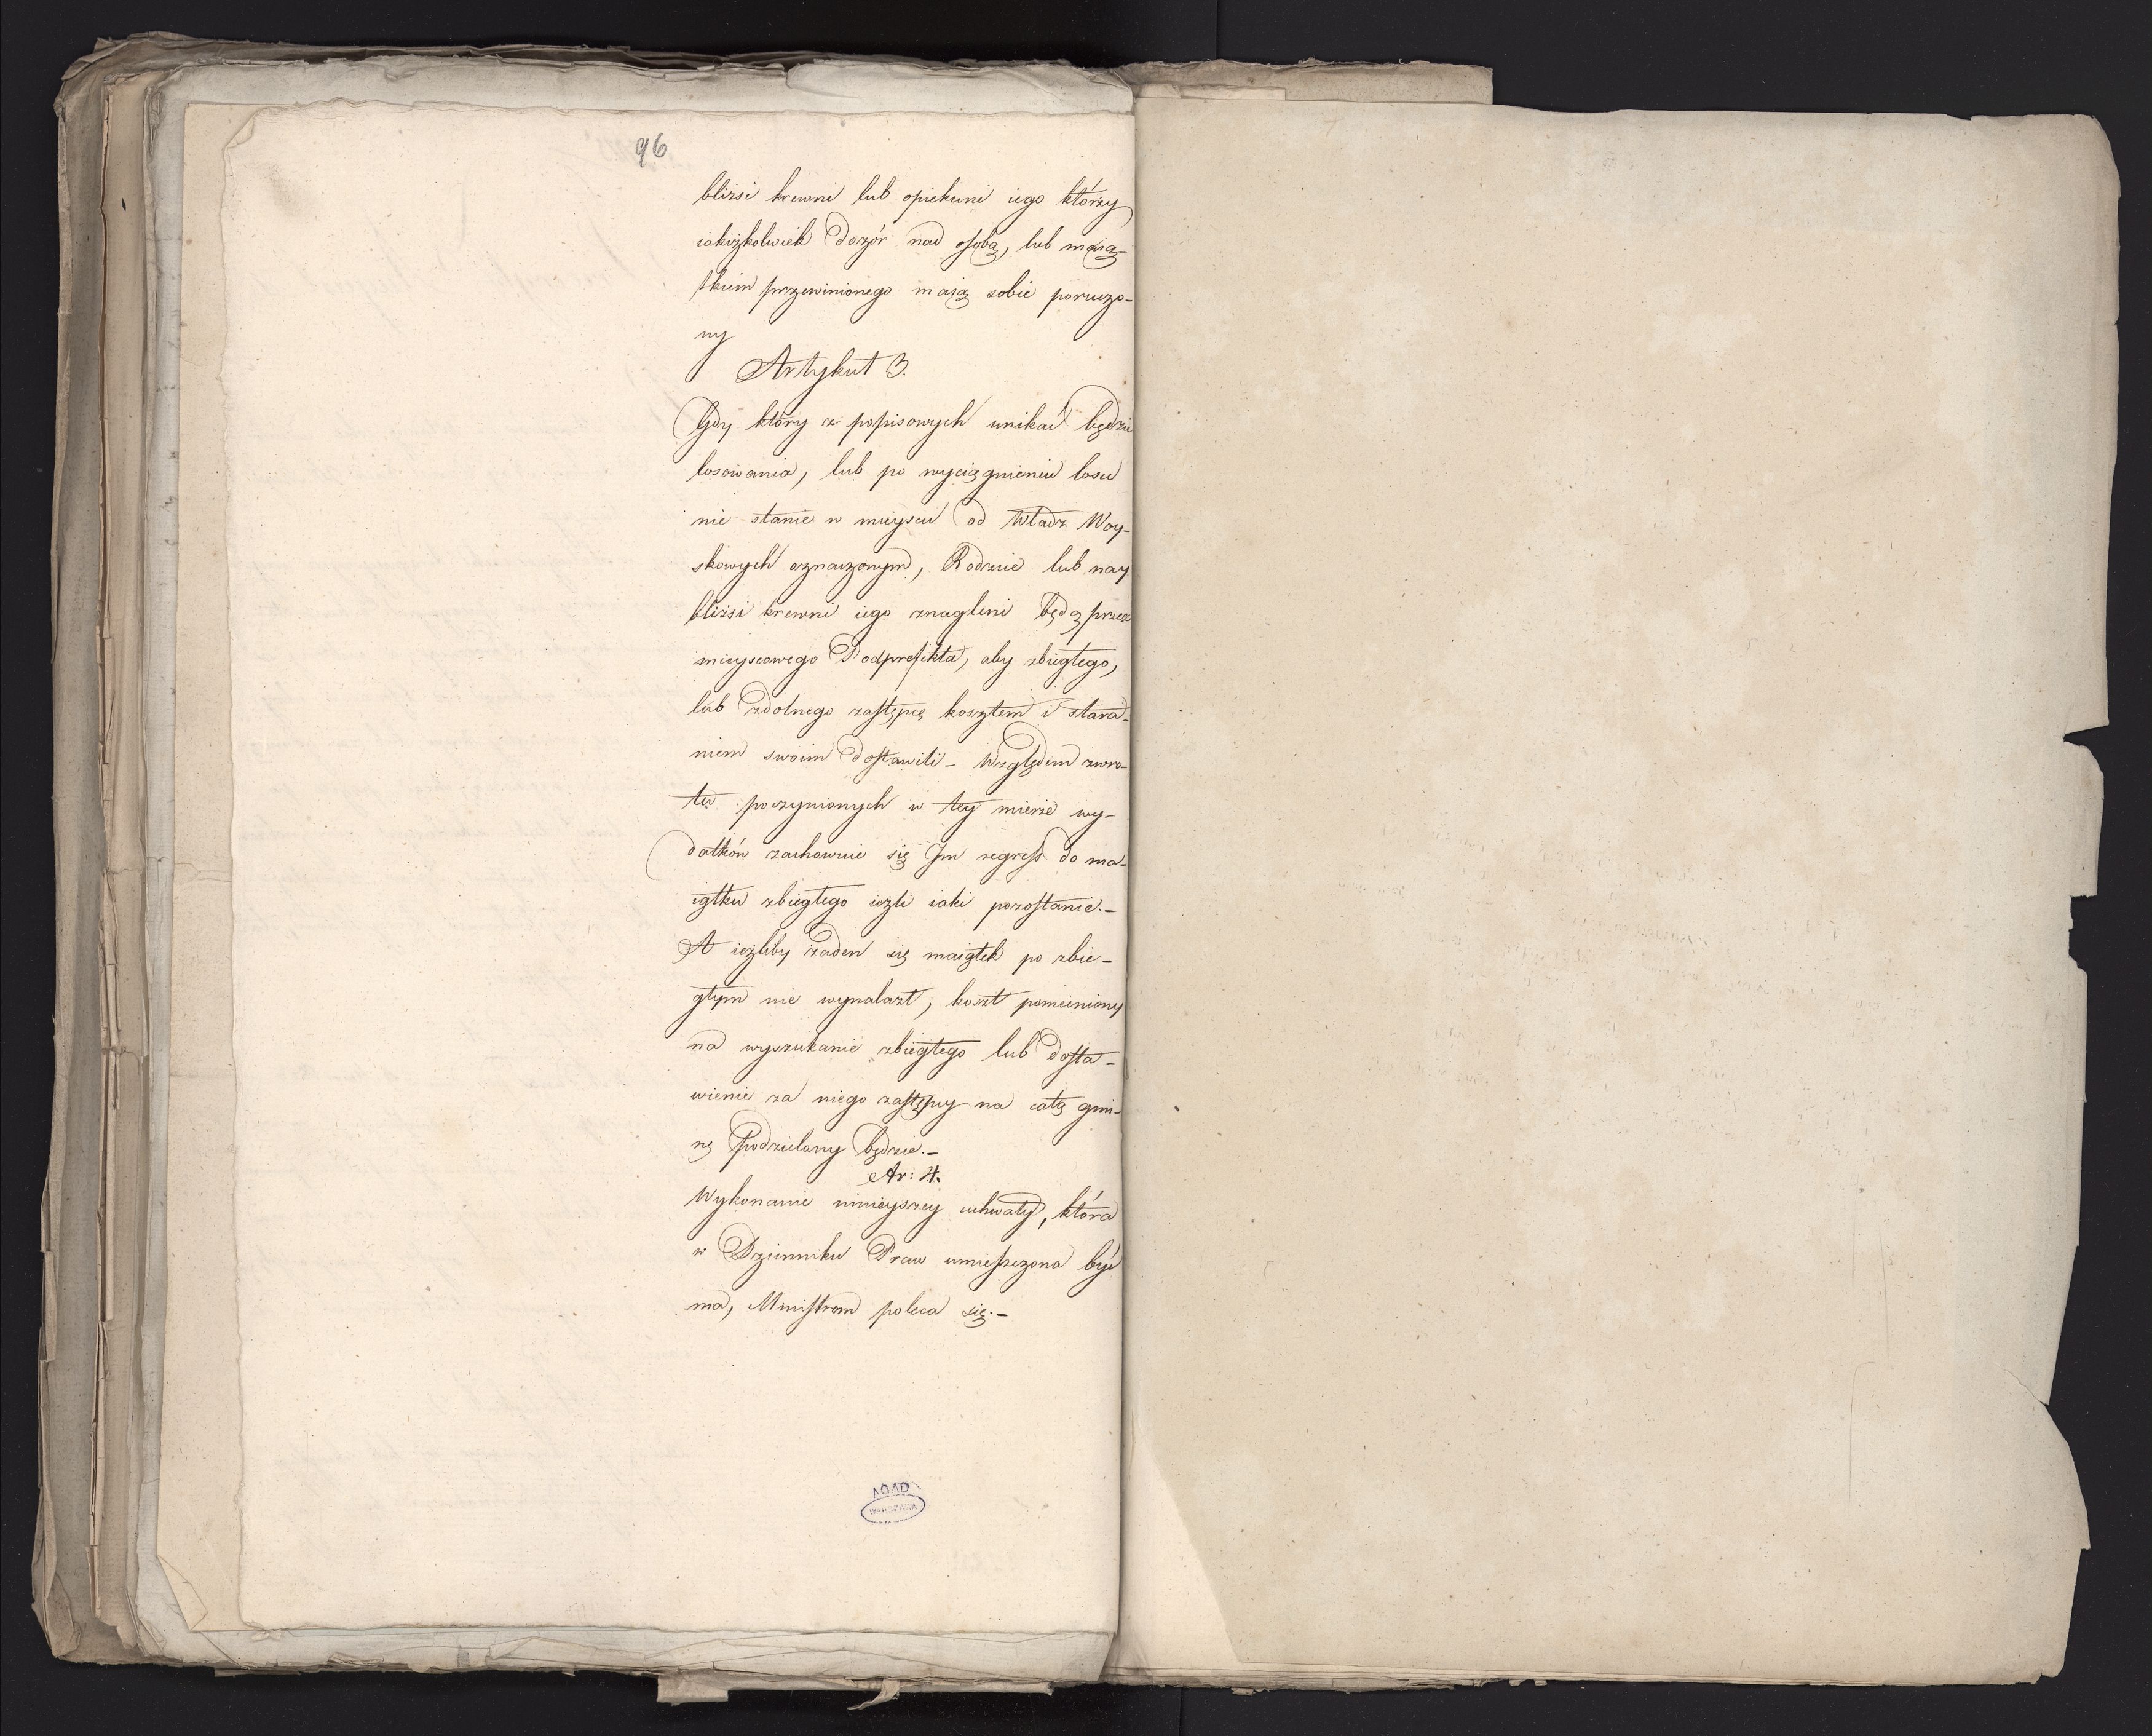 96
bliżsi krewni lub opiekuni iego którzy
iakiżkolwiek dozór nad osobą, lub maią-
tkiem przewinionego maią sobie poruczo-
ny
Artykuł 3.
Gdy który z popisowych unikać będzie
losowania, lub po wyciągnieniu losu
nie stanie w mieyscu od Władz Woy-
skowych oznaczonym, Rodzice lub nay
bliżsi krewni iego znagleni będą przez
mieyscowego Podprefekta, aby zbiegłego,
lub zdolnego zastępcę kosztem i stara-
niem swoim dostawili – Względem zwro-
tu poczynionych w tey mierze wy-
datków zachowuie się Im regress do ma-
iątku zbiegłego ieżli iaki pozostanie.–
A ieżliby żaden się maiątek po zbie-
głym nie wynalazł, koszt pomieniony
na wyszukanie zbiegłego lub dosta-
wienie za niego zastępcy na całą gmi-
nę podzielany będzie.–
Ar: 4.
Wykonanie ninieyszey uchwały, która
w Dzienniku Praw umieszczona być
ma, Ministrom poleca się.–
AGAD
WARSZAWA